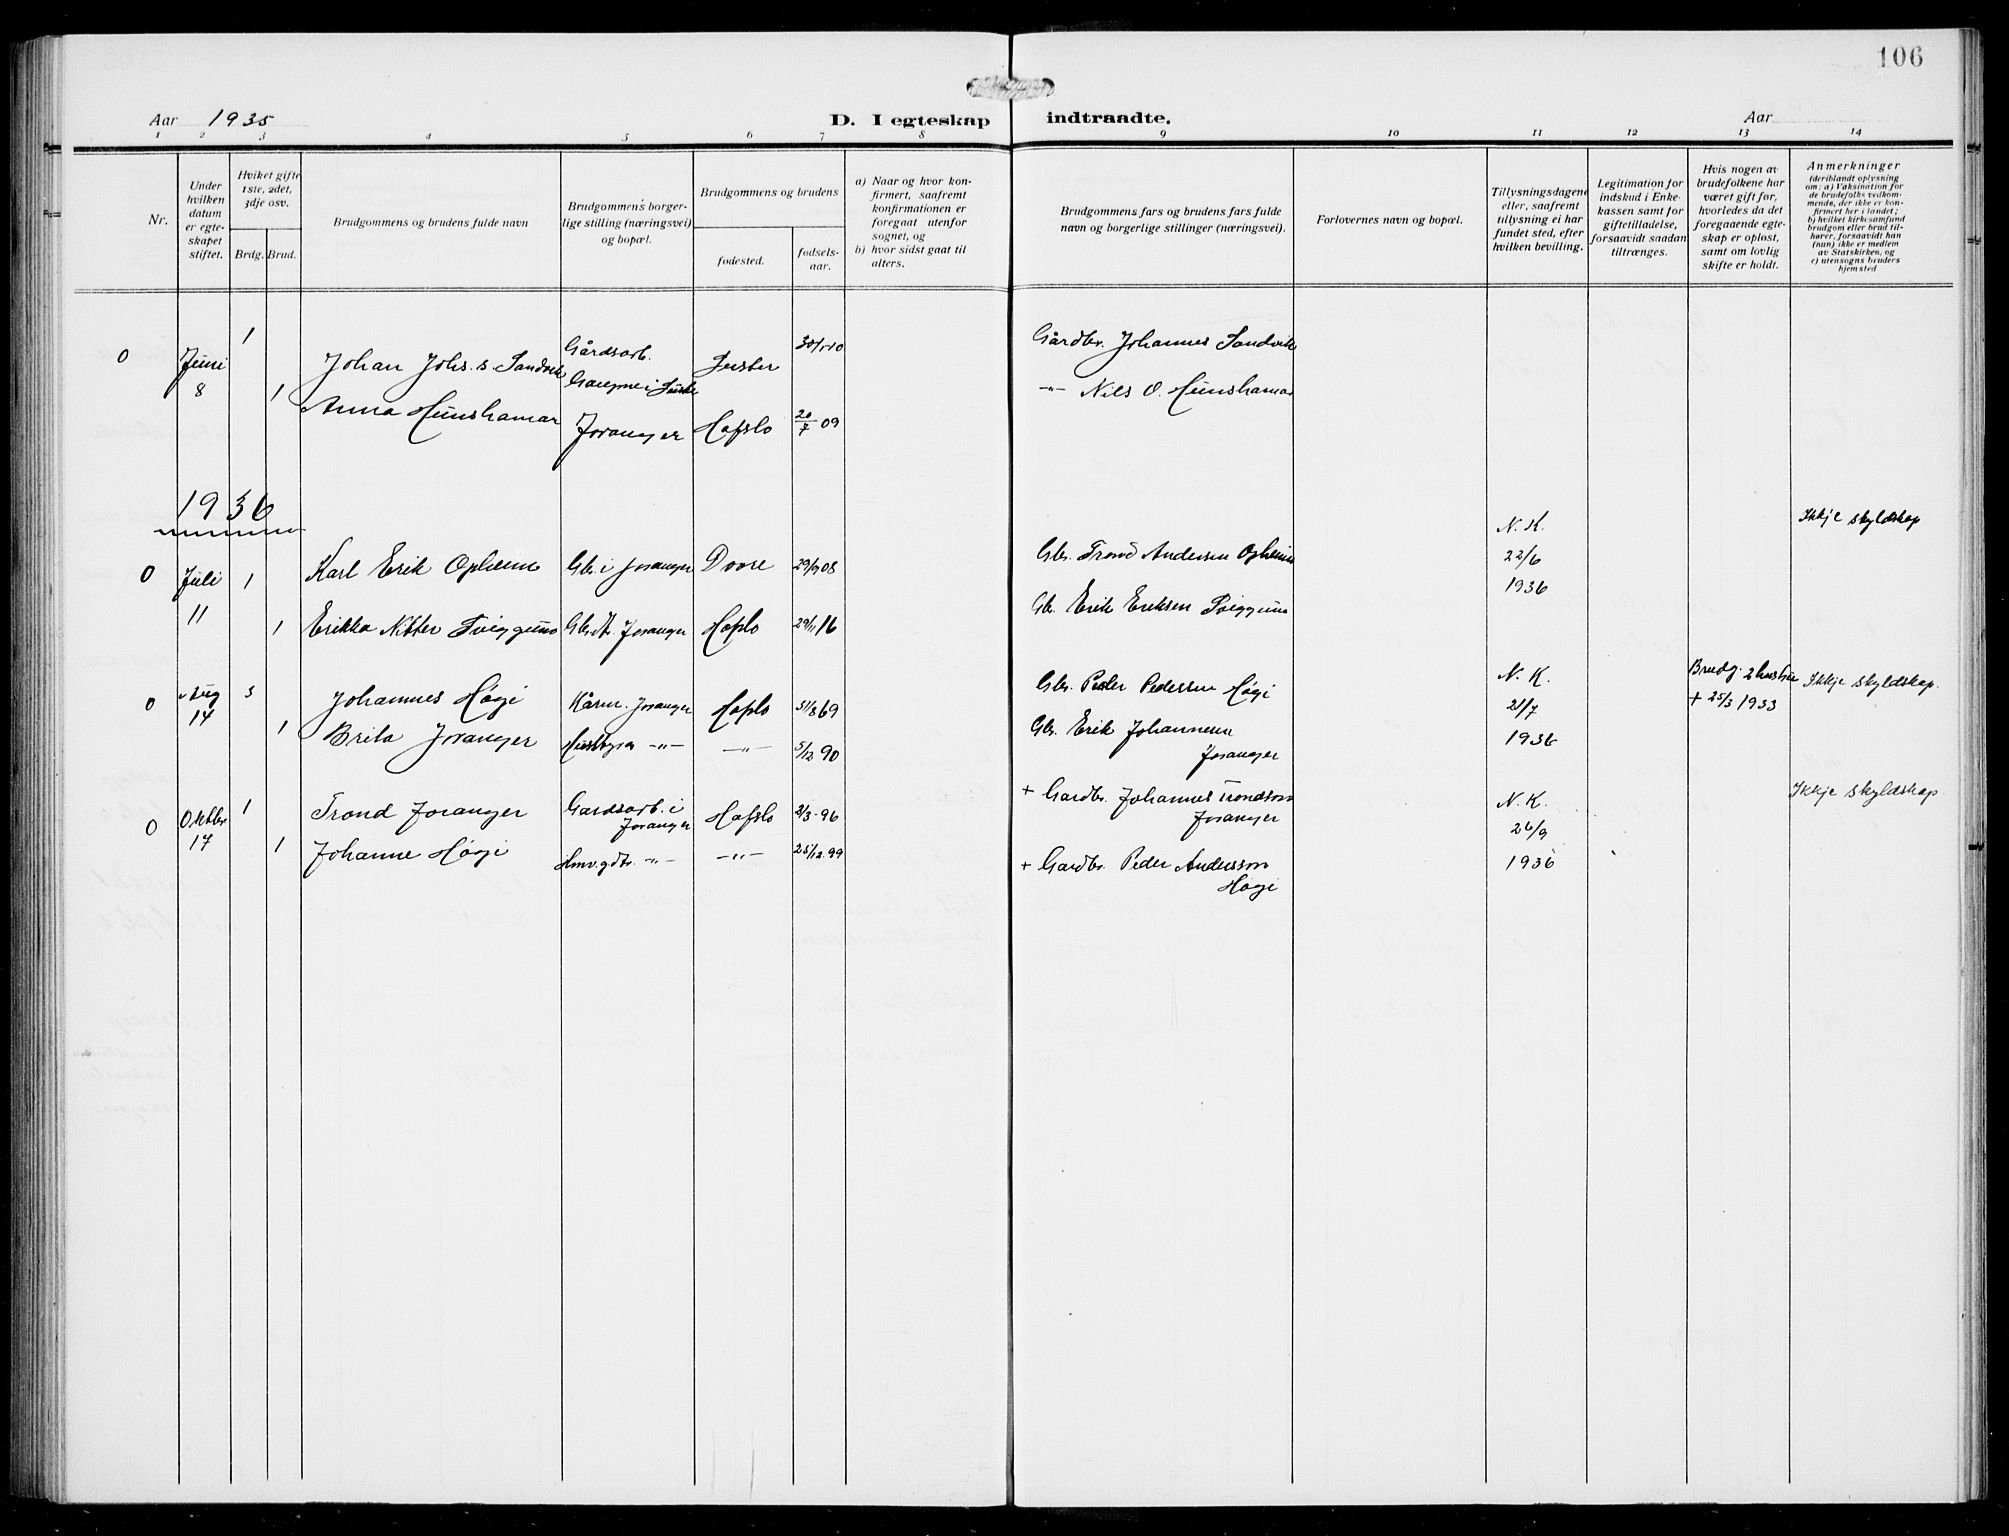 106
Aar 1935
D. I egteskap indtraadte.
Aar
1 2 3 4 5 6 7 8 9 10 11 12 13 14
Nr.
Under
hvilken
datum
er egte-
skapet
stiftet.
Hviket gifte
1ste, 2det,
3dje osv.
Brdg. Brud.
Brudgommens og brudens fulde navn
Brudgommens borger-
lige stilling (næringsvei)
og bopæl.
Brudgommens og brudens
fødested.
fødsels-
aar.
a) Naar og hvor kon-
firmert, saafremt
konfirmationen er
foregaat utenfor
sognet, og
b) hvor sidst gaat til
alters.
Brudgommens fars og brudens fars fulde
navn og borgerlige stillinger (næringsvei).
Forlovernes navn og bopæl.
Tillysningsdagene
eller, saafremt
tillysning ei har
fundet sted, efter
hvilken bevilling.
Legitimation for
indskud i Enke-
kassen samt for
giftetilladelse,
forsaavidt saadan
tiltrænges.
Hvis nogen av
brudefolkene har
været gift før,
hvorledes da det
foregaaende egte-
skap er opløst,
samt om lovlig
skifte er holdt.
Anmerkninger
(deriblandt oplysning
om: a) Vaksination for
de brudefolks vedkom-
mende, der ikke er kon-
firmert her i landet;
b) hvilket kirkesamfund
brudgom eller brud til-
hører, forsaavidt han
(hun) ikke er medlem
av Statskirken, og
c) utensogns bruders
hjemsted
0 Juni 8 1 Johan Johs. s. Sandvik Gårdsarb. Luster Gårdbr. Johannes Sandvik
1 Anna Hunshamar Joranger Hafslo 20/7 09 -"- Nils O. Hunshamar
1936
0 Juli 11 1 Karl Erik Opheim Gbr. i Joranger Dovre 29/9 08 Gbr. Trond Andersen Opheim N. K. 22/6 1936 Ikkje skyldskap
1 Erikka Tviggum Joranger Haflo 29/11 16 Gb. Erik Eriksen Tviggum
0 Aug 14 3 Johannes Høgi Kårm. Joranger Haflo 31/8 69 Gbr. Peder Pedersen Høgi N. K. 21/7 1936 Brudg. 2 hustru + 25/3 1933 Ikkje skyldskap.
1 Brita Joranger -"- -"- 5/12 90 Gbr. Erik Johannesen Joranger
0 Oktbr 17 1 Trond Joranger Gardsarb. i Joranger Hafslo 2/3-96 + Gardbr. Johannes Trondson Joranger N. K. 26/9 1936 Ikkje skyldskap.
1 Johanne Høgi -"- -"- 25/12-99 + Gardbr. Peder Andersson Høgi